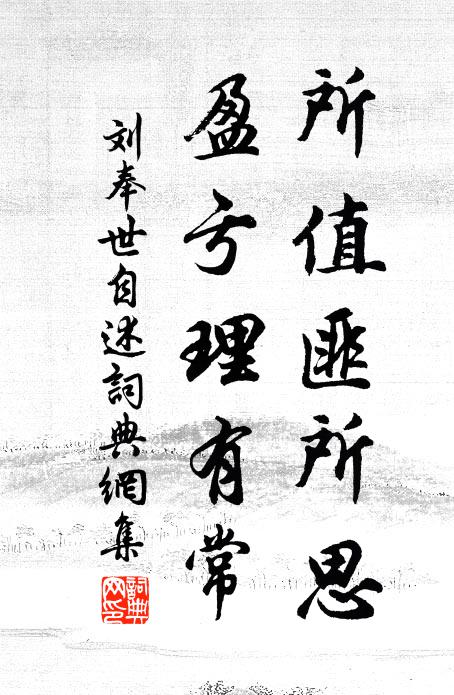 所值匪所思
盈亏理有常
刘奉世自述詞典網集
詞典網印